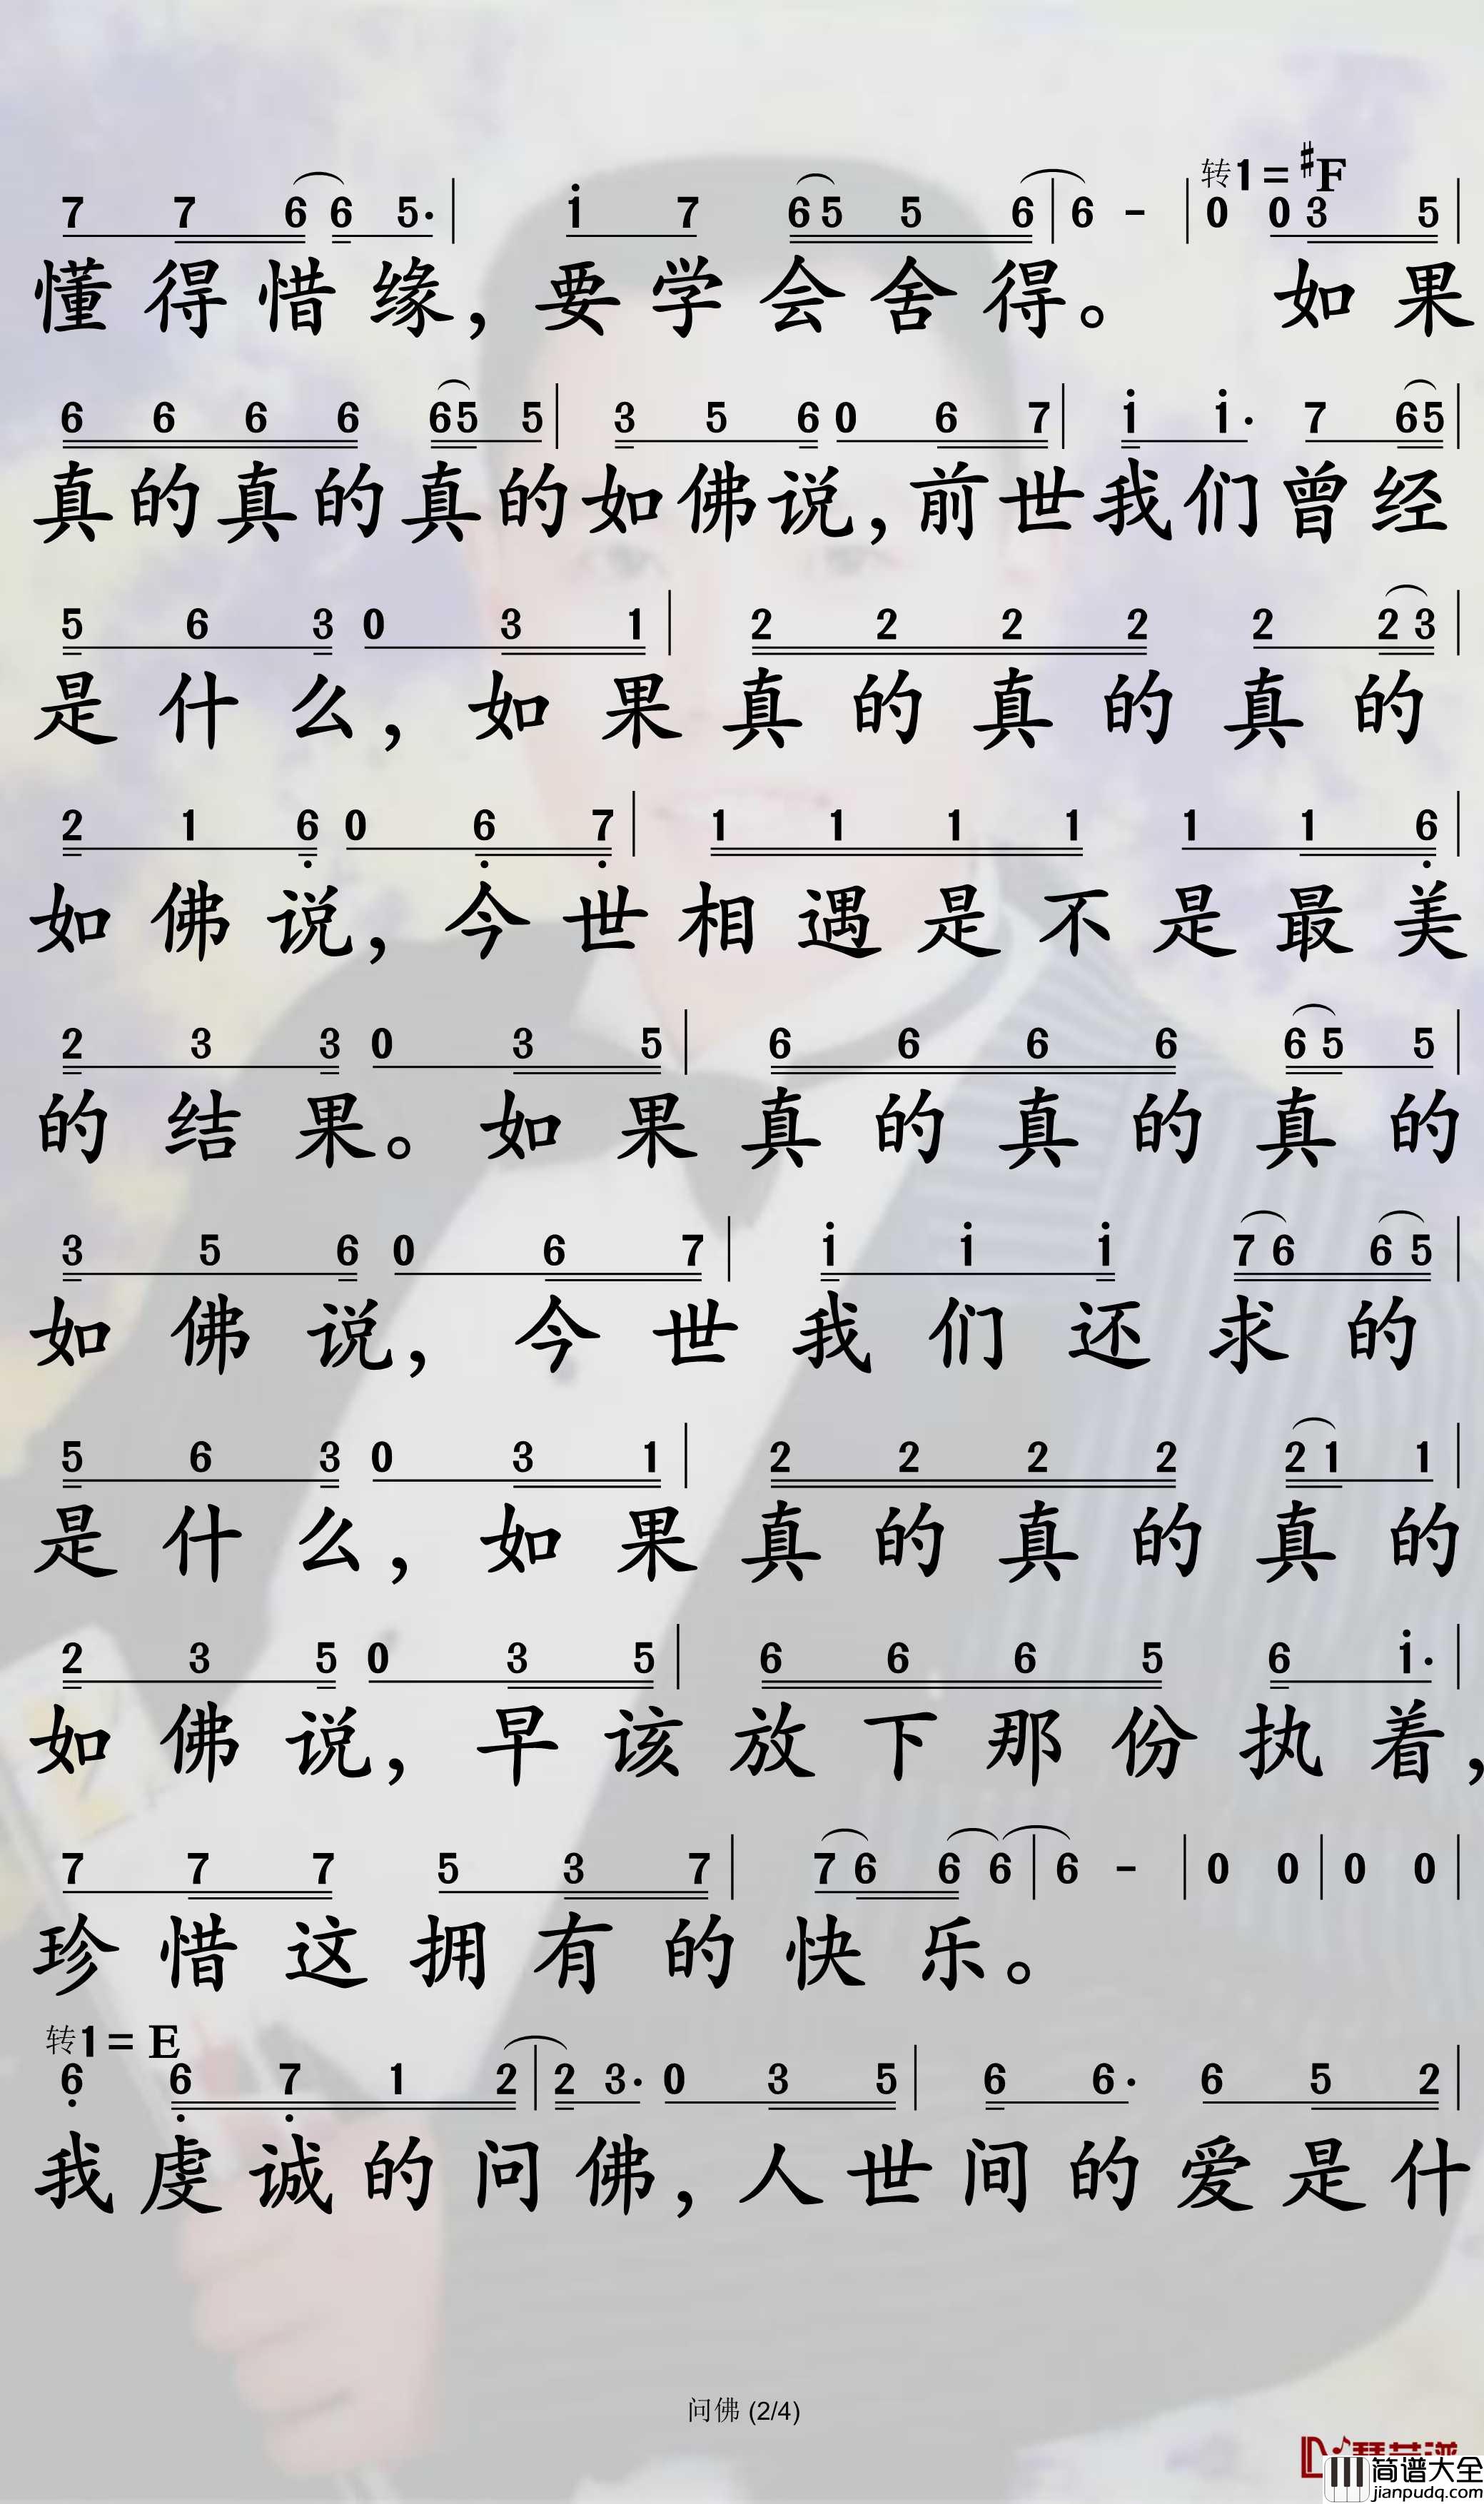 转1=♯F
7 7 6 6 5· | i 7 6 5 5 6 | 6 - | 0 0 3 5 |
懂得惜缘，要学会舍得。 如果
6 6 6 6 6 5 5 | 3 5 6 0 6 7 | i i· 7 6 5 |
真的真的真的如佛说，前世我们曾经
5 6 3 0 3 1 | 2 2 2 2 2 2 3 |
是什么，如果真的真的真的
2 1 6 0 6 7 | 1 1 1 1 1 1 6 |
如佛说，今世相遇是不是最美
2 3 3 0 3 5 | 6 6 6 6 6 5 5 |
的结果。如果真的真的真的
3 5 6 0 6 7 | i i i 7 6 6 5 |
如佛说，今世我们还求的
5 6 3 0 3 1 | 2 2 2 2 2 1 1 |
是什么，如果真的真的真的
2 3 5 0 3 5 | 6 6 6 5 6 i· |
如佛说，早该放下那份执着，
7 7 7 5 3 7 | 7 6 6 6 | 6 - | 0 0 | 0 0 |
珍惜这拥有的快乐。
转1=E
6 6 7 1 2 | 2 3· 0 3 5 | 6 6· 6 5 2 |
我虔诚的问佛，人世间的爱是什
问佛 (2/4)
简谱大全
jianpudq.com